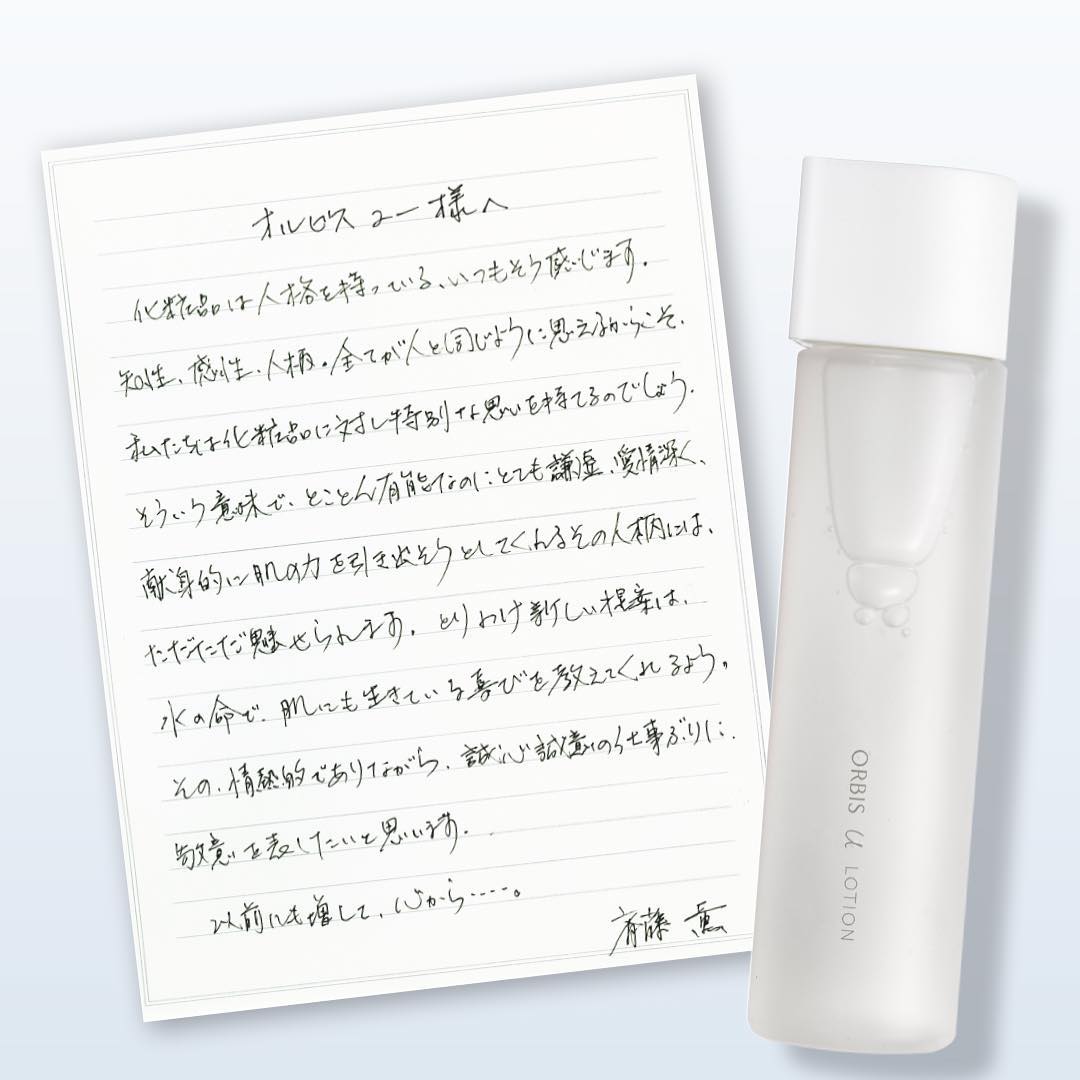 オルビス ユー様へ
化粧品は人格を持っている、いつもそう感じます。
知性、感性、人柄。全てが人と同じように思えるからこそ、
私たちは化粧品に対し特別な思いを持てるのでしょう。
そういう意味で、とことん有能なのにとても謙虚、愛情深く、
献身的に肌の力を引き出そうとしてくれるその人柄には、
ただただ魅せられます。とりわけ新しい提案は、
水の命で、肌にも生きている喜びを教えてくれるよう。
その、情熱的でありながら、誠心誠意の仕事ぶりに、
敬意を表したいと思います。
以前にも増して、心から……。
斎藤 薫
ORBIS u LOTION